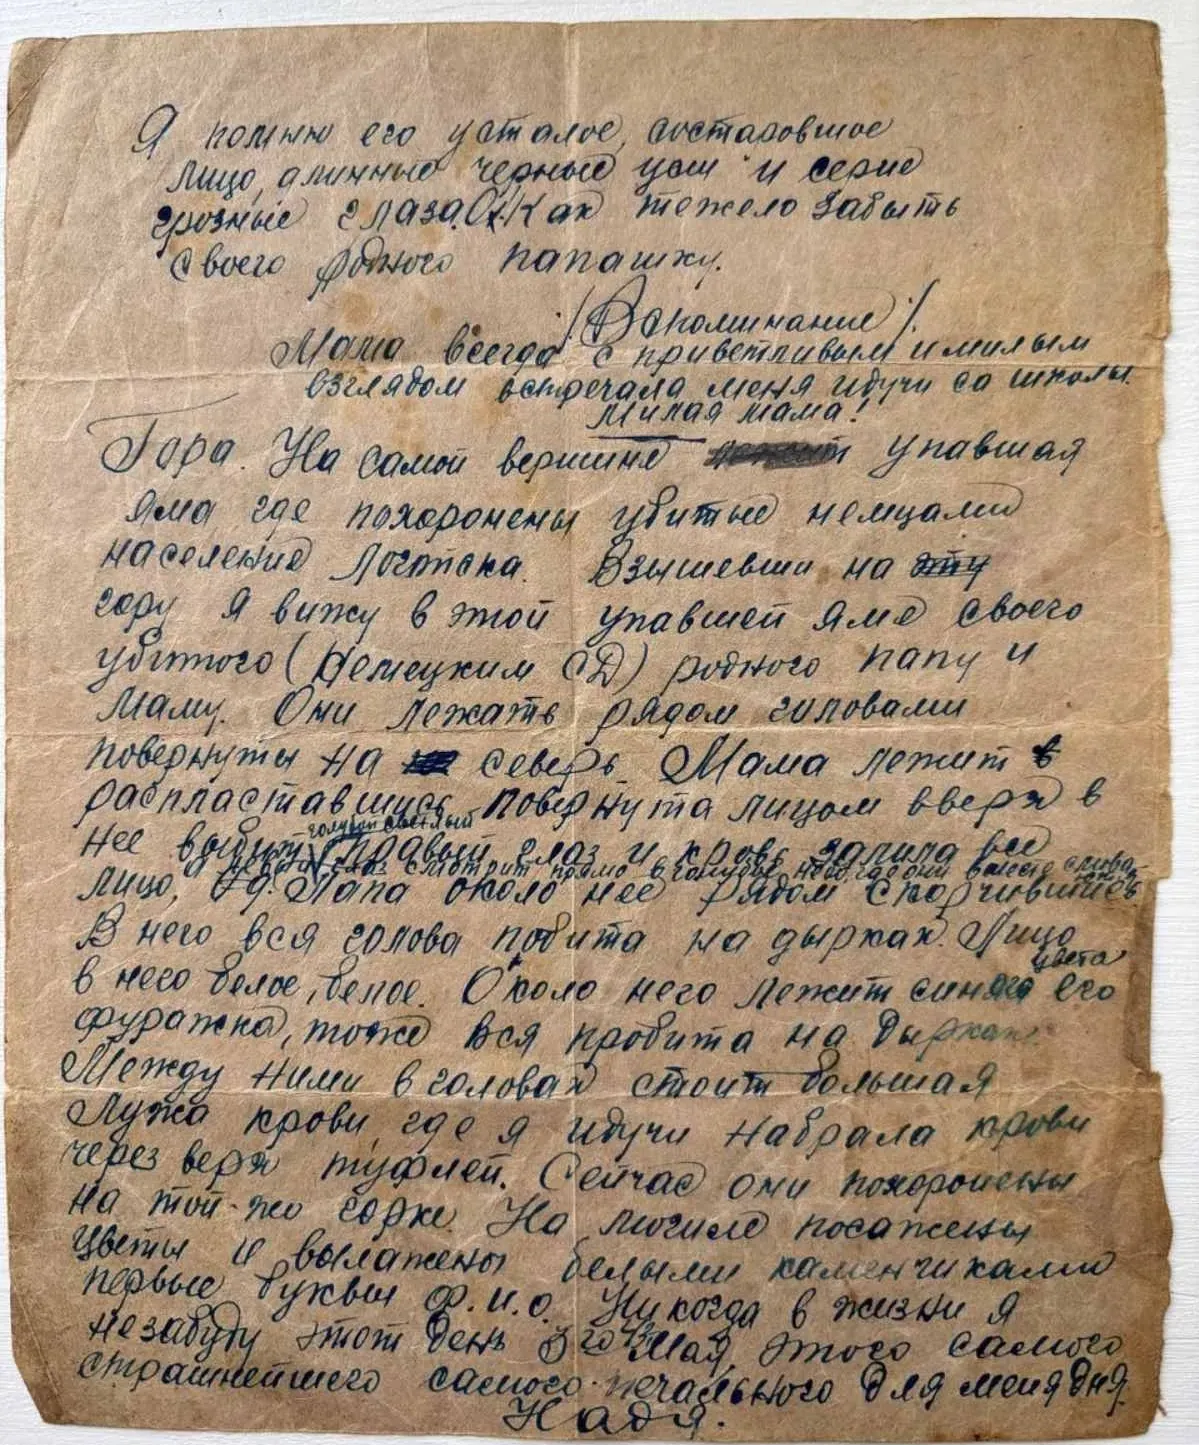 Я помню его усталое, состаровшое
лицо, длинные черные усы и серые
грозные глаза. Ох! Как тежело забыть
своего родного папашку.
/Вспоминание/.
Мама всегда с приветливым и милым
взглядом встречала меня идучи са школы.
Милая мама!
Гора. На самой вершине упавшая
яма где похоронены убитые немцами
население Логойска. Взышевши на эту
гору я вижу в этой упавшей яме своего
убитого (Немецким СД) родного папу и
маму. Они лежать рядом головами
повернуты на северь. Мама лежит в
распластавшись повернута лицом вверх в
голубой светлый
нее выбит правый глаз и кровь залила все
глаз смотрит прямо в голубое небо, где они
лицо, Папа около нее рядом скорчившись
В него вся голова побита на дырках. Лицо
цвета
в него белое, белое. Около него лежит синяга его
фуражка, тоже вся пробита на дырках
Между ними в головах стоит большая
Лужа крови, где я идучи набрала крови
через верх туфлей. Сейчас они похоронены
на той-жо горке. На могиле посажены
цветы и вылажены белыми каменчиками
первые буквы Ф.И.О. Никогда в жизни я
незабуду этот день 3го мая, этого самого
страшнейшего самого-печального для меня дня.
Надя.